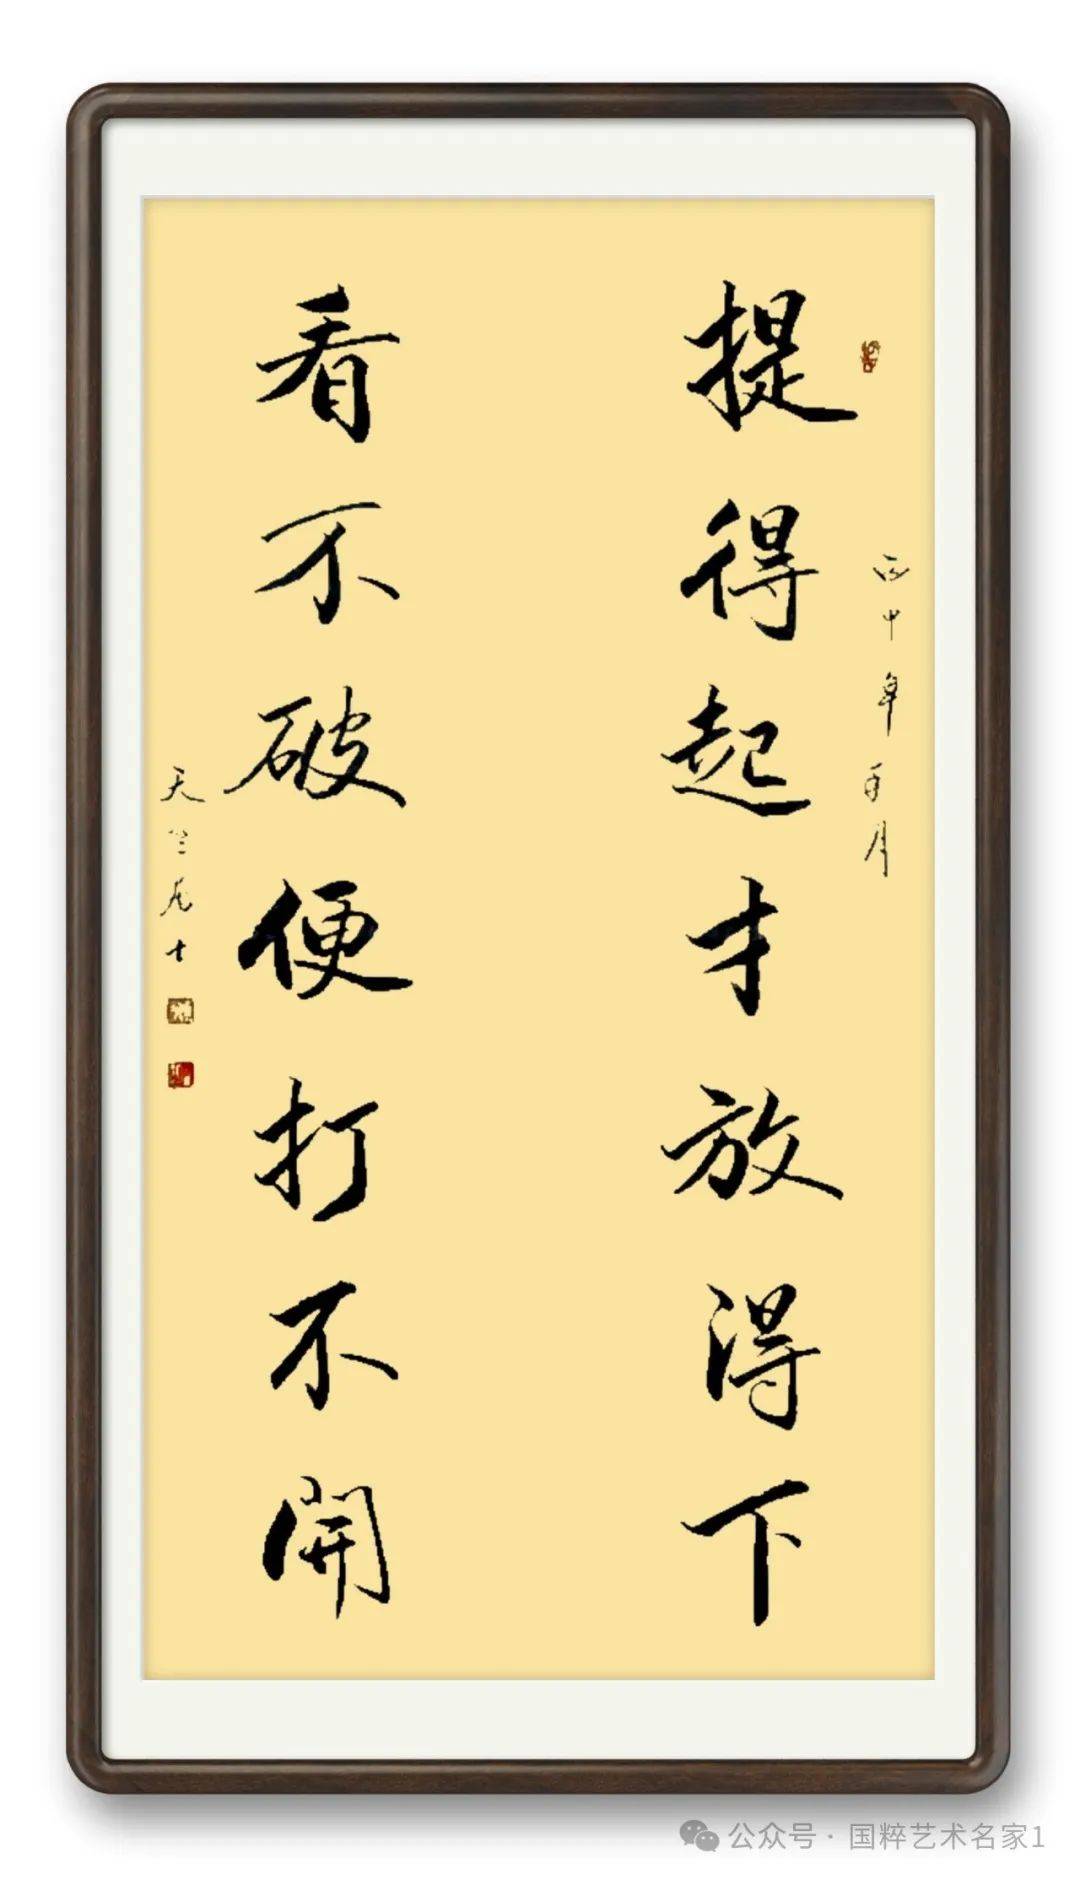 提得起才放得下
看不破便打不開
丙申年
月
天竺居士
公众号 · 国粹艺术名家1